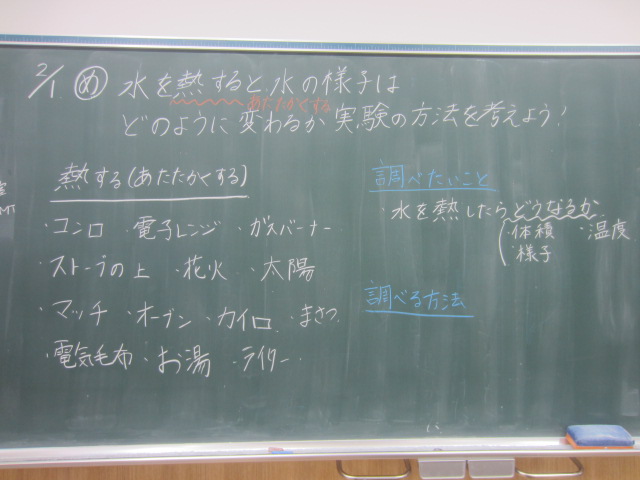 2/1 め 水を熱すると、水の様子は
あたたかくする
どのように変わるか実験の方法を考えよう!
熱する(あたたかくする)
・コンロ ・電子レンジ ・ガスバーナー
・ストーブの上 ・花火 ・太陽
・マッチ ・オーブン ・カイロ ・まさつ
・電気毛布 ・お湯 ・ライター
調べたいこと
・水を熱したらどうなるか
・体積 ・温度
・様子
調べる方法